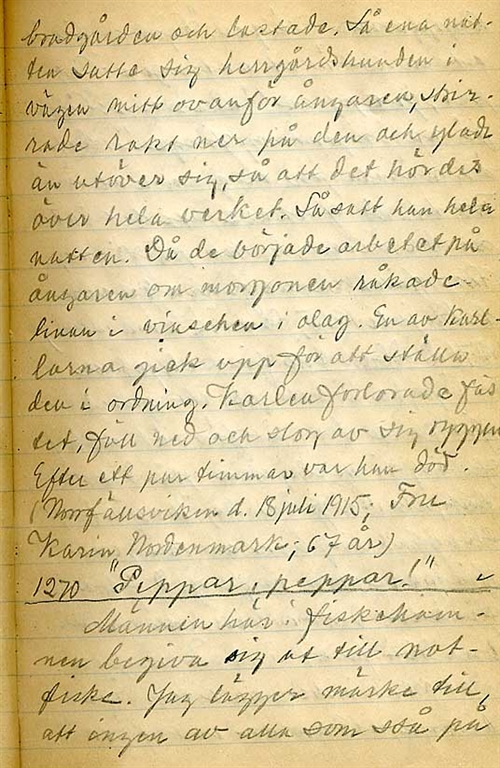 brädgården och lastade. Så ena nat-
ten satte sig herrgårdshunden i
vägen mitt ovanför ångaren, stir-
rade rakt ner på den och ylade
än utöver sig, så att det hördes
över hela verket. Så satt han hela
natten. Då de började arbetet på
ångaren om morgonen råkade
linan i vinschen i olag. En av karl-
larna gick upp för att ställa
den i ordning. Karlen förlorade fäs
tet, föll ned och slog av sig ryggen
Efter ett par timmar var han död.
(Norrfällsviken d. 18 juli 1915; Fru
Karin Nordenmark; 67 år)
1270 "Peppar, peppar!"
Männen här i fiskeham-
nen begiva sig ut till not-
fiske. Jag lägger märke till,
att ingen av alla som stå på